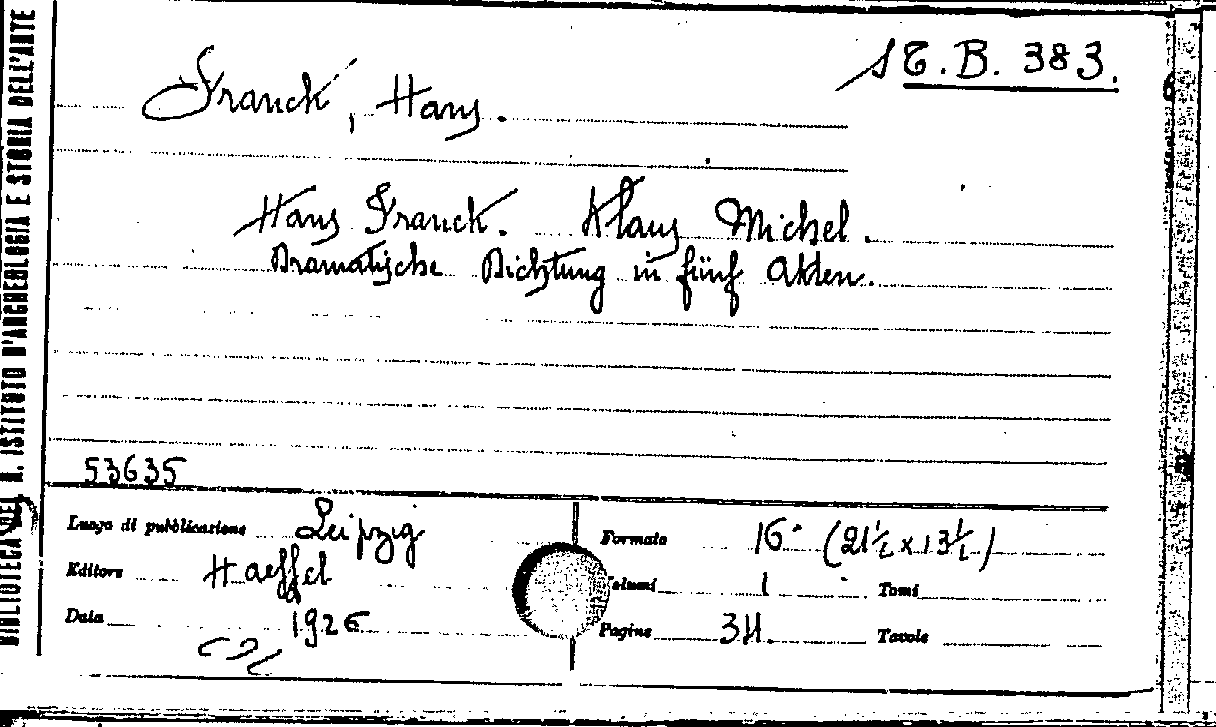 ST.B. 383.
Franck, Hans.
Hans Franck. Klaus Michel.
Dramatische Dichtung in fünf Akten.
53635
Luogo di pubblicazione Leipzig
Editore Haessel
Data 1926
Formato 16° (21½ x 13½)
Volumi 1 Tomi
Pagine Tavole
BIBLIOTECA DEL R. ISTITUTO D'ARCHEOLOGIA E STORIA DELL'ARTE